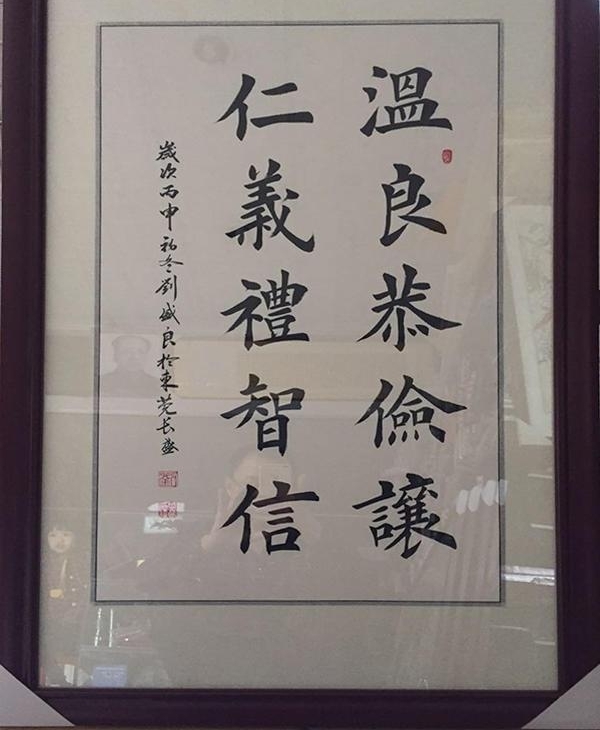 溫良恭儉讓
仁義禮智信
歲次丙申初冬劉盛良於東莞長盛